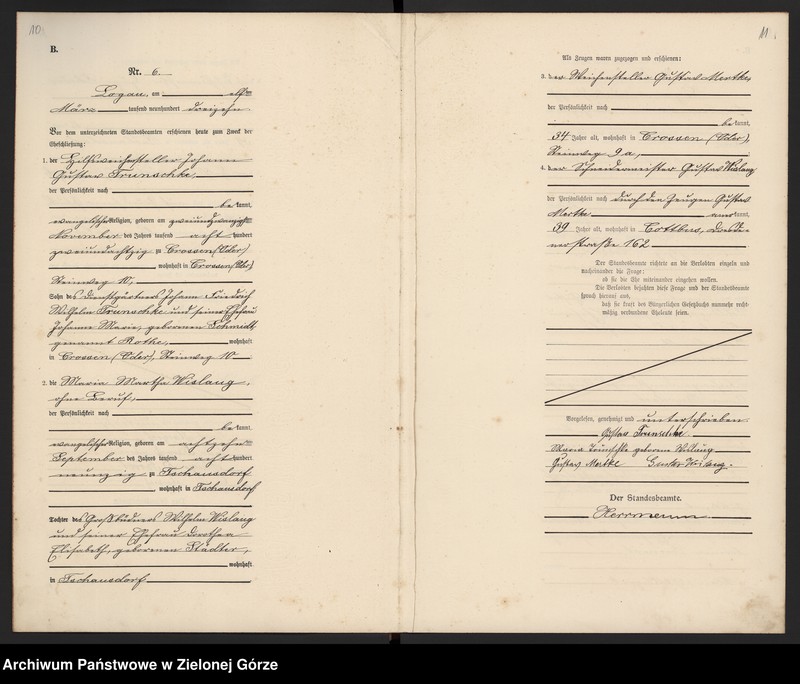 10
B.
Nr. 6.
Logau, am elften
März tausend neunhundert dreizehn
Vor dem unterzeichneten Standesbeamten erschienen heute zum Zweck der
Eheschließung:
1. der Hilfsweichensteller Johann
Gustav Trunschke,
der Persönlichkeit nach
be kannt,
evangelischer Religion, geboren am zweiundzwanzigsten
November des Jahres tausend acht hundert
zweiundachtzig zu Crossen (Oder)
wohnhaft in Crossen (Oder)
Steinweg 10,
Sohn des Dienstgärtners Johann Friedrich
Wilhelm Trunschke und seiner Ehefrau
Johanne Marie, geborenen Schmidt,
genannt Rothe, wohnhaft
in Crossen (Oder), Steinweg 10
2. die Maria Martha Wislaug,
ohne Beruf,
der Persönlichkeit nach
be kannt,
evangelischer Religion, geboren am achtzehnten
September des Jahres tausend acht hundert
neunzig zu Tschausdorf
wohnhaft in Tschausdorf
Tochter des Großbüdners Wilhelm Wislaug
und seiner Ehefrau Dorothea
Elisabeth, geborenen Städter,
wohnhaft
in Tschausdorf
11
Als Zeugen waren zugezogen und erschienen:
3. der Weichensteller Gustav Mertke,
der Persönlichkeit nach
be kannt,
34 Jahre alt, wohnhaft in Crossen (Oder),
Steinweg 9a,
4. der Schneidermeister Gustav Wislaug
der Persönlichkeit nach durch den Zeugen Gustav
Mertke aner kannt,
39 Jahre alt, wohnhaft in Cottbus, Dresde-
nerstraße 162
Der Standesbeamte richtete an die Verlobten einzeln und
nacheinander die Frage:
ob sie die Ehe miteinander eingehen wollen.
Die Verlobten bejahten diese Frage und der Standesbeamte
sprach hierauf aus,
daß sie kraft des Bürgerlichen Gesetzbuchs nunmehr recht-
mäßig verbundene Eheleute seien.
Vorgelesen, genehmigt und unterschrieben
Gustav Trunschke.
Maria Trunschke geborene Wislaug
Gustav Mertke Gustav Wislaug.
Der Standesbeamte.
Herrmann
Archiwum Państwowe w Zielonej Górze